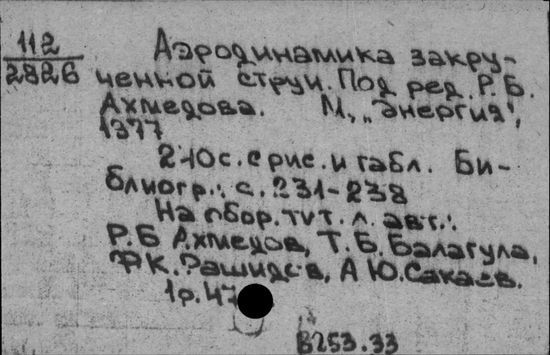 112
2826
Аэродинамика закру-
ченной струи. Под ред. Р.Б.
Ахмедова. М., „Энергия",
1977
240 с. с рис. и табл. Би-
блиогр.: с. 231-238
На обор. тит. л. авт.:
Р.Б Ахмедов, Т.Б. Балагула,
Ф.К. Рашидов, А Ю. Сакаев.
1р. 47
В253.33